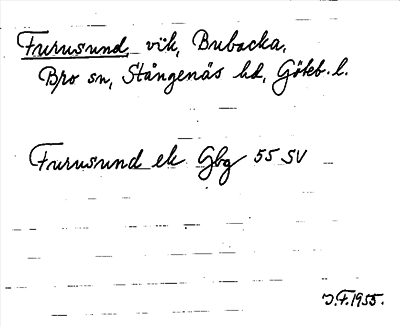 Furusund, vik, Bubacka,
Bro sn, Stångenäs hd, Göteb. l.
Furusund ek Gbg 55 SV
J.F. 1955.